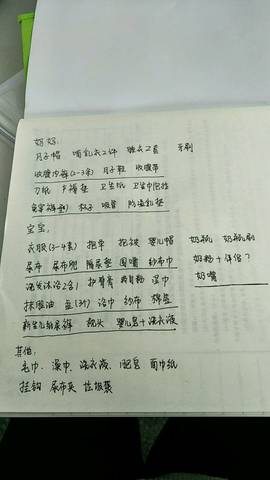 妈妈:
月子帽 哺乳衣2件 睡衣2套 牙刷
收腹内裤(2-3条) 月子鞋 收腹带
刀纸 产褥垫 卫生纸 卫生巾
杯子 吸管 防溢乳垫
宝宝:
衣服(3-4套) 抱单 抱被 婴儿帽 奶瓶 奶瓶刷
尿布 尿布兜 隔尿垫 围嘴 纱布巾 奶粉+伴侣?
洗发沐浴2合1 护臀膏 爽身粉 湿巾 奶嘴
抚触油 盆(3个) 浴巾 纱布 棉签
新生儿纸尿裤 枕头 婴儿皂+洗衣液
其他:
毛巾、湿巾、洗衣液、肥皂 面巾纸
挂钩 尿布夹 垃圾袋